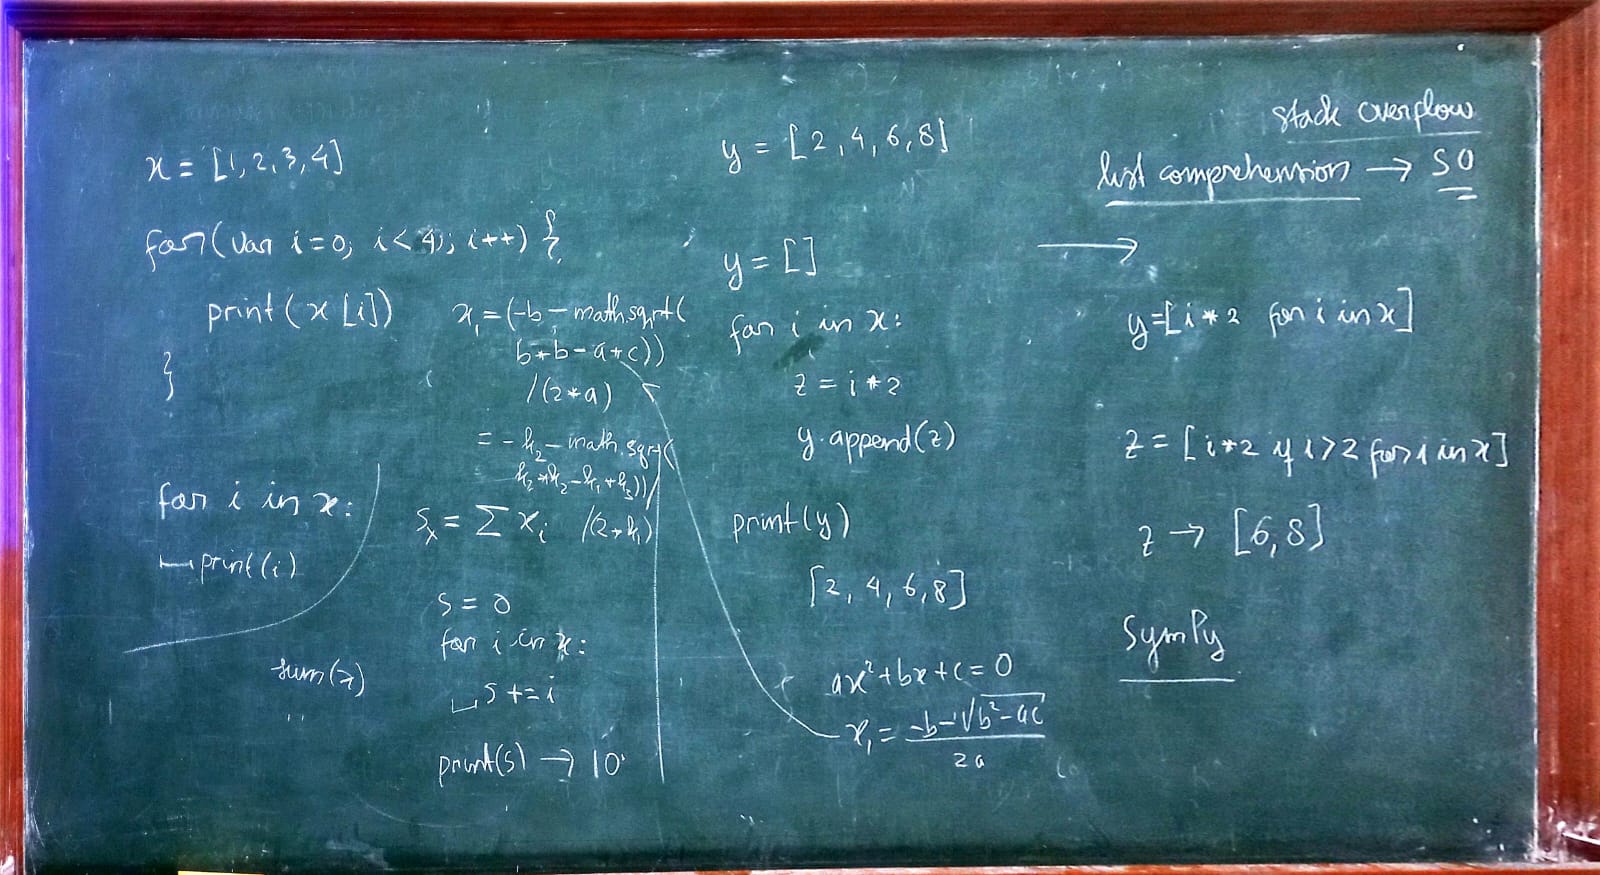 x = [1, 2, 3, 4]
for(var i=0; i<4; i++) {
print(x[i])
}
for i in x:
print(i)
sum(x)
x₁=(-b-math.sqrt(
b*b-a*c))
/(2*a)
= -k₂-math.sqrt(
k₂*k₂-k₁*k₃))
/(2*k₁)
Sₓ = Σ xᵢ
s = 0
for i in x:
s += i
print(s) → 10
y = [2, 4, 6, 8]
y = []
for i in x:
z = i*2
y.append(z)
print(y)
[2, 4, 6, 8]
ax²+bx+c=0
x₁ = (-b-√b²-ac)/2a
stack overflow
list comprehension → SO
→
y=[i*2 for i in x]
z = [i*2 if i>2 for i in x]
z → [6,8]
SymPy